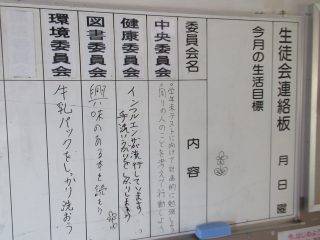 生徒会連絡板 月 日 曜
今月の生活目標
委員会名 内容
中央委員会
学年末テストに向けて計画的に勉強しよう
周りの人のことを考えて行動しよう
健康委員会
インフルエンザが流行しています。
手洗い、うがいをしましょう
図書委員会
興味のある本を読もう
環境委員会
牛乳パックをしっかり洗おう